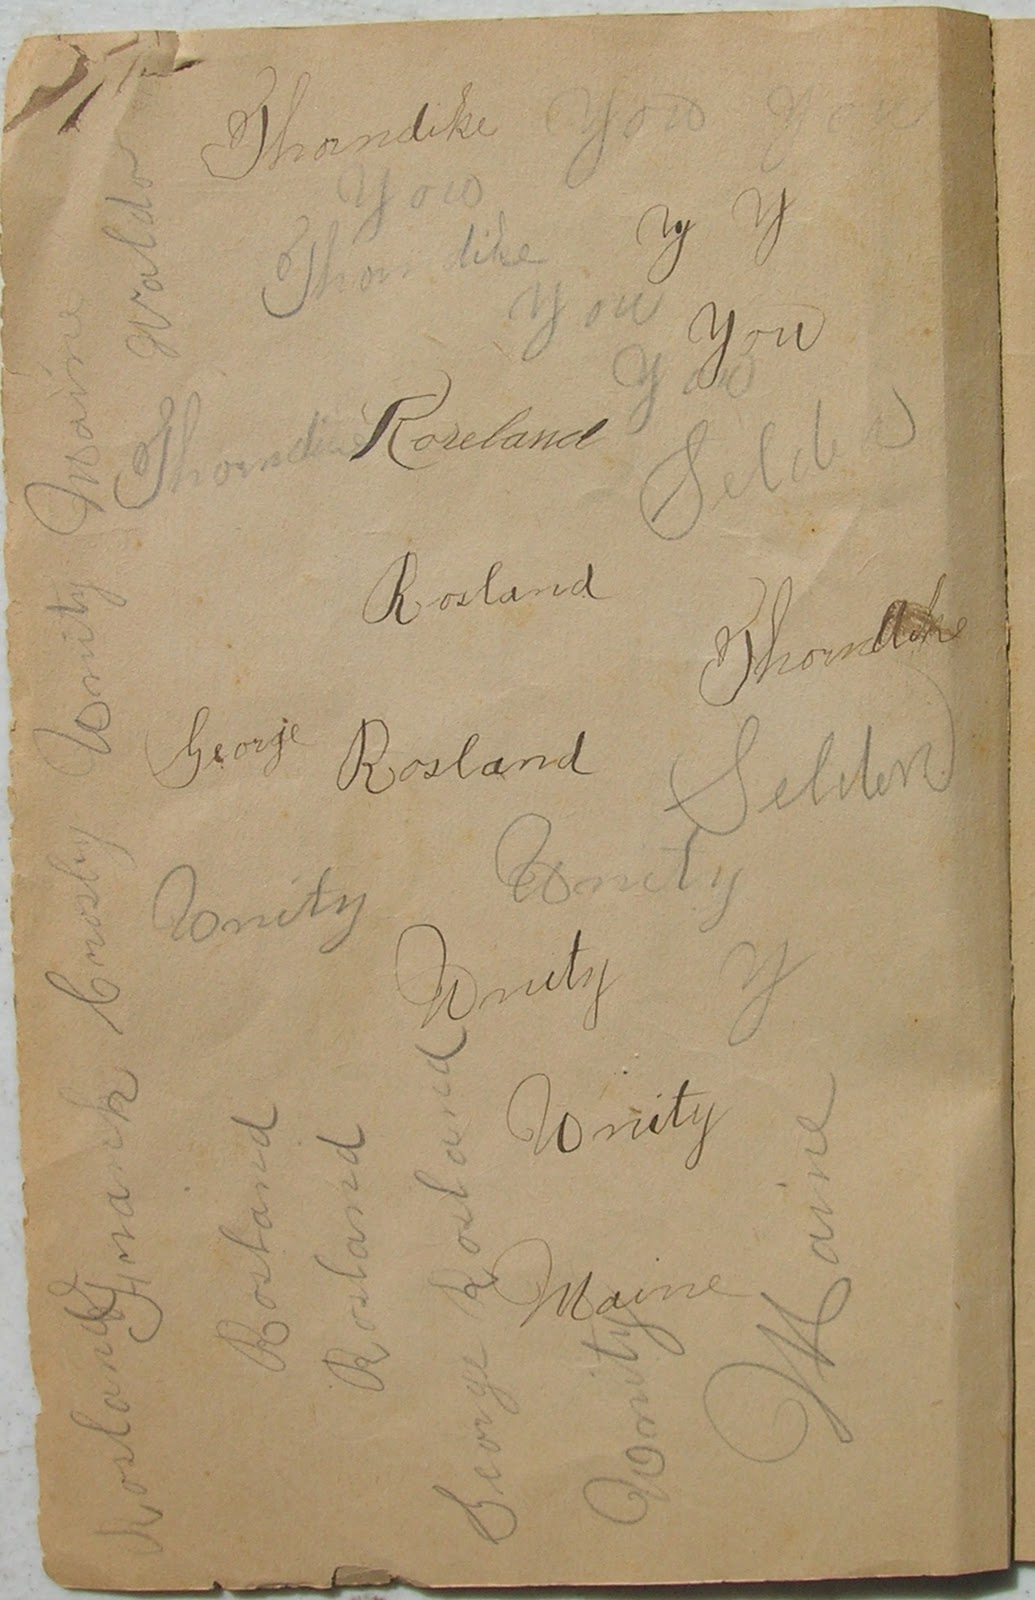 Thorndike You You
You
Y Y
Thorndike
You
You
You
Roseland
Thorndike
Selden
Rosland
Thorndike
George Rosland
Selden
Unity
Unity
Unity
Y
Unity
Maine
Waldo
Frank Crosby Unity Maine
Rosland
Rosland
Rosland
George Rosland
Unity
Maine